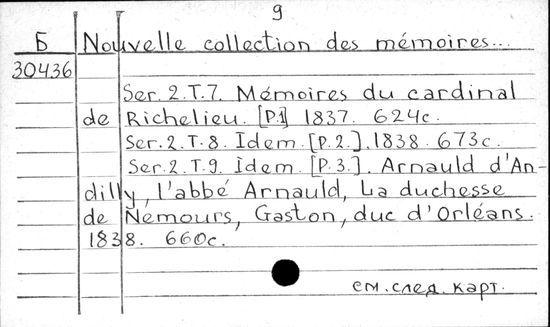 9
Б Nouvelle collection des mémoires...
30436
Ser. 2. T. 7. Mémoires du cardinal
de Richelieu. [P.1] 1837. 624c.
Ser. 2. T. 8. Idem. [P.2.]. 1838. 673c.
Ser. 2. T. 9. Idem. [P.3.]. Arnauld d'An-
dilly, l'abbé Arnauld, La duchesse
de Nemours, Gaston, duc d'Orléans.
1838. 660c.
см. след. карт.